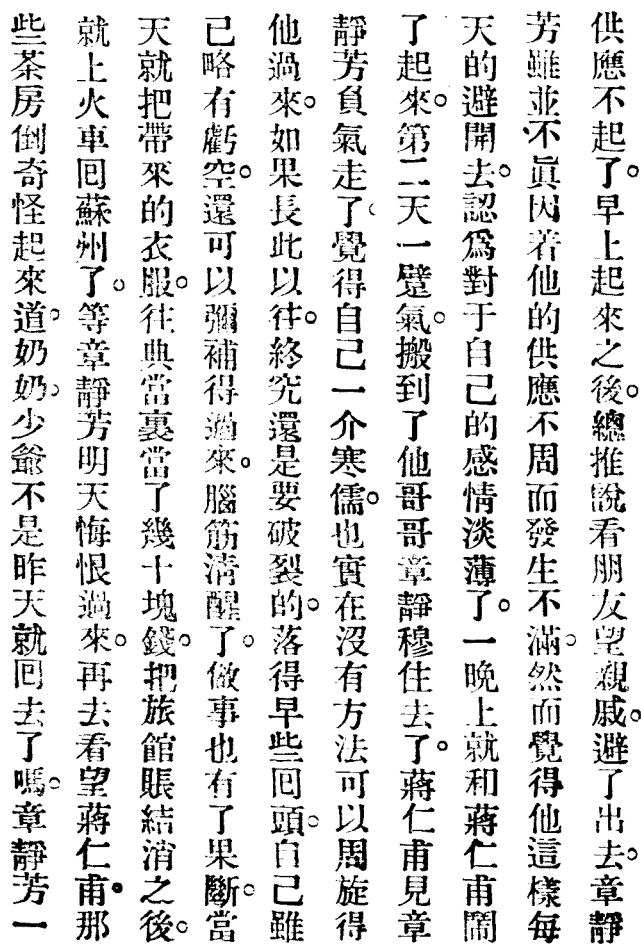 供應不起了。早上起來之後。總推說看朋友望親戚。避了出去。章靜
芳雖並不眞因着他的供應不周而發生不滿。然而覺得他這樣每
天的避開去。認爲對于自己的感情淡薄了。一晚上就和蔣仁甫鬧
了起來。第二天一蹩氣。搬到了他哥哥章靜穆住去了。蔣仁甫見章
靜芳負氣走了。覺得自己一介寒儒。也實在沒有方法可以周旋得
他過來。如果長此以往。終究還是要破裂的。落得早些回頭。自己雖
已略有虧空。還可以彌補得過來。腦筋清醒了。做事也有了果斷。當
天就把帶來的衣服。往典當裏當了幾十塊錢。把旅館賬結消之後。
就上火車回蘇州了。等章靜芳明天悔恨過來。再去看望蔣仁甫。那
些茶房倒奇怪起來道。奶奶。少爺不是昨天就回去了嗎。章靜芳一